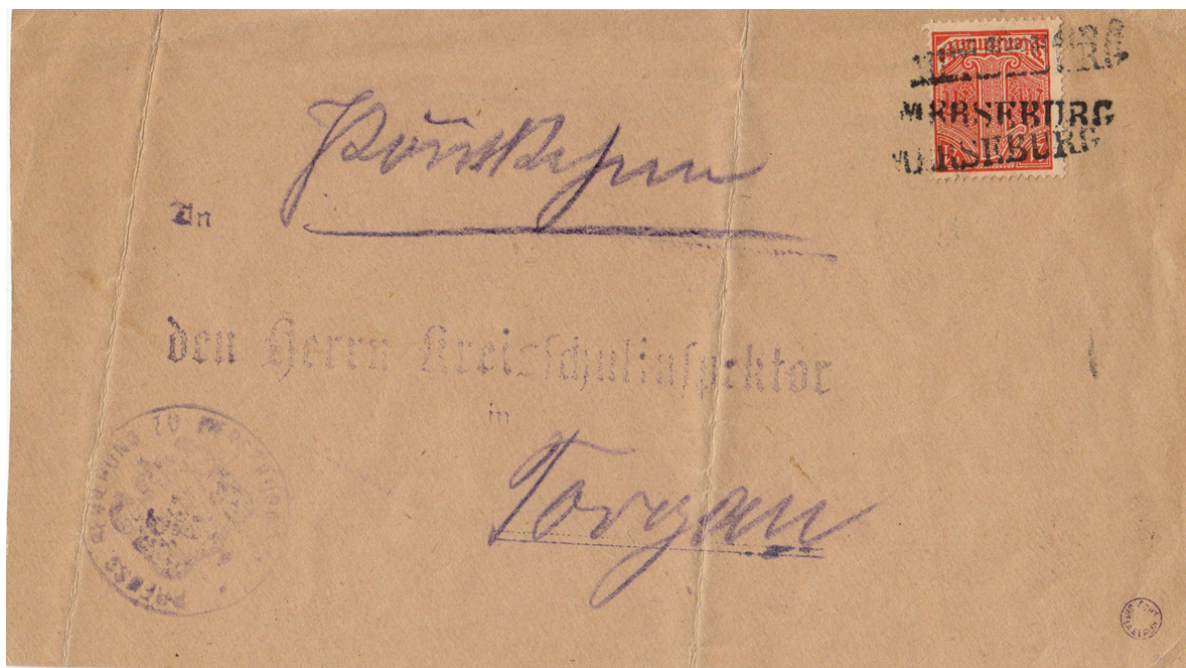 MERSEBURG
MERSEBURG
MERSEBURG
An
den Herrn Kreisschulinspektor
in
Torgau
PREUSS. REGIERUNG ZU MERSEBURG